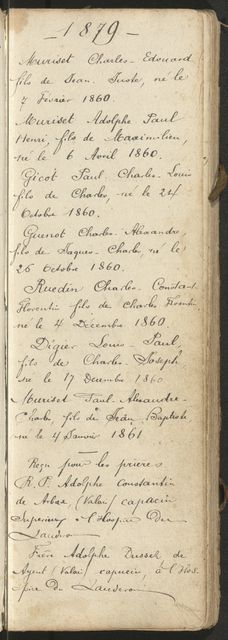 - 1879 -
Muriset Charles-Edouard
fils de Jean-Juste, né le
7 Février 1860.
Muriset Adolphe Paul
Henri, fils de Maximilien,
né le 6 Avril 1860.
Gicot Paul-Charles-Louis
fils de Charles, né le 24
Octobre 1860.
Guenot Charles-Alexandre,
fils de Jaques-Charles, né le
26 Octobre 1860.
Ruedin Charles-Constant
Florentin fils de Charles Florentin
né le 4 Décembre 1860.
Digier Louis-Paul,
fils de Charles-Joseph
né le 17 Decembre 1860
Muriset Paul-Alexandre-
Charles, fils de Jean-Baptiste
né le 4 Janvier 1861
Reçu pour les prières
R. P. Adolphe Constantin
de Arbaz (Valais) capucin
Supérieur à l'Hospice Du
Landeron
Frère Adolphe de
Ayent (Valais) capucin, à l'Hos-
pice Du Landeron